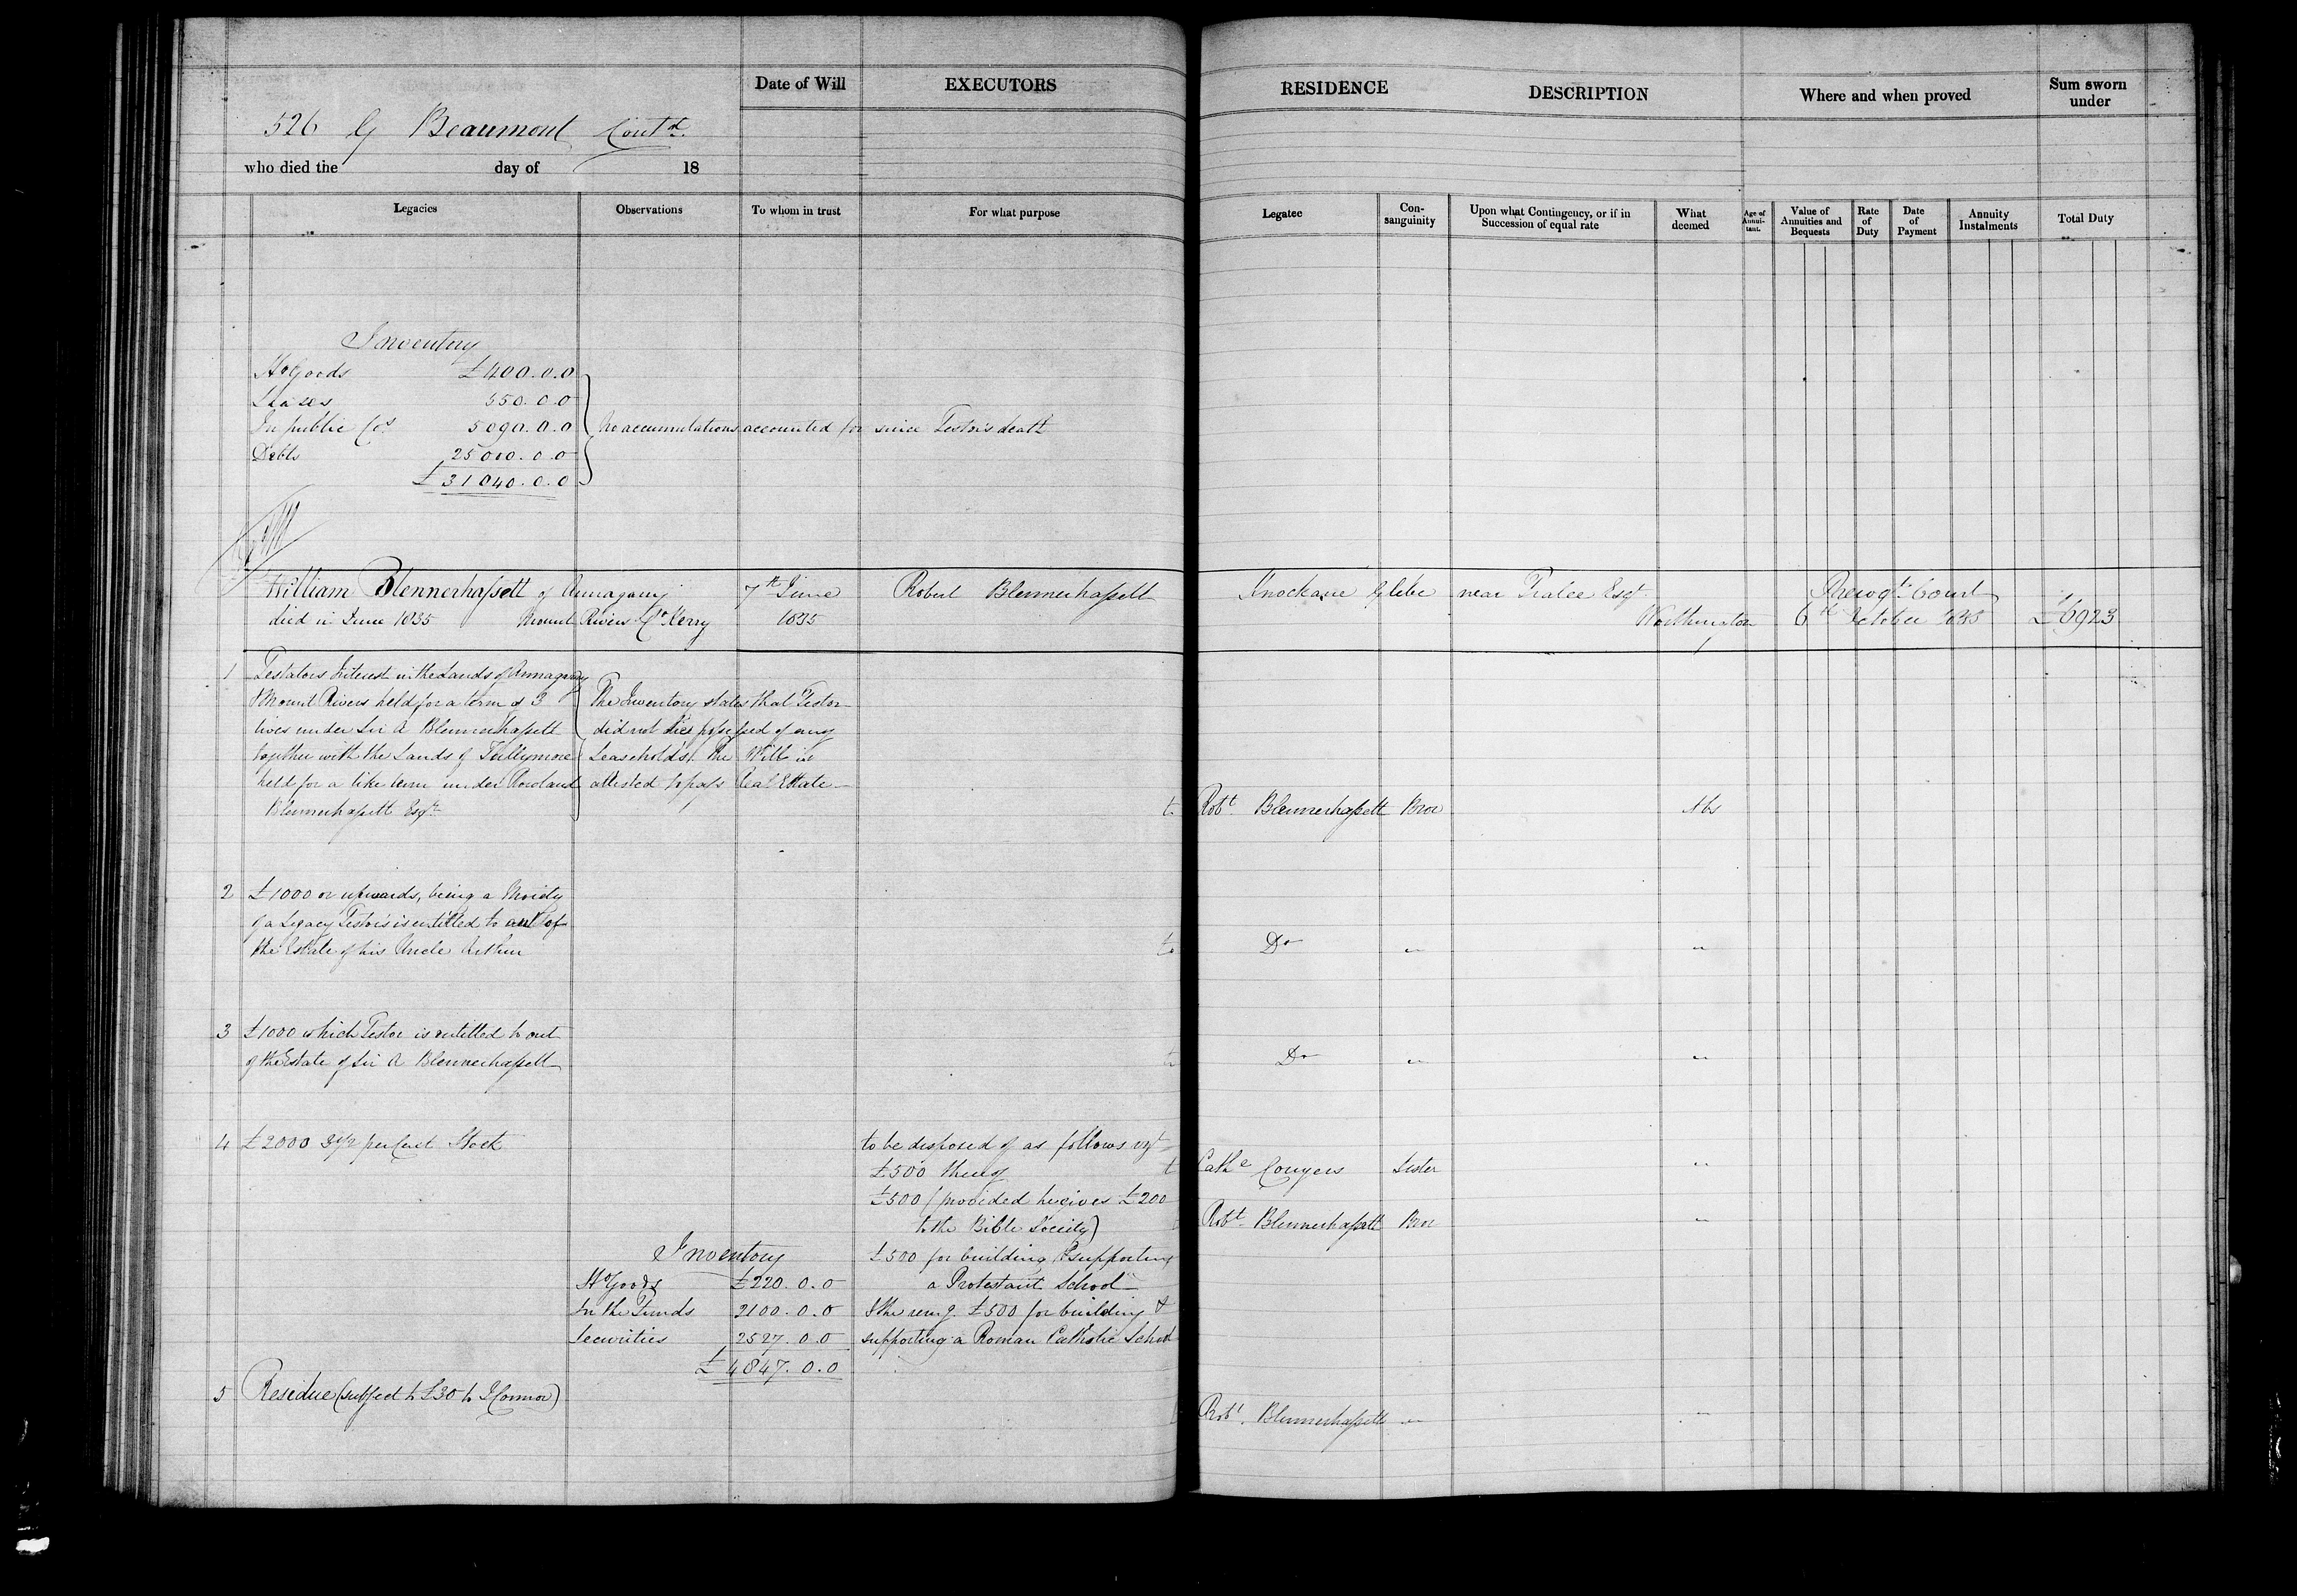 Date of Will
EXECUTORS
RESIDENCE
DESCRIPTION
Where and when proved
Sum sworn under
526 G Beaumont Contd.
who died the day of 18
Legacies
Observations
To whom in trust
For what purpose
Legatee
Con-sanguinity
Upon what Contingency, or if in Succession of equal rate
What deemed
Age of Annui-tant.
Value of Annuities and Bequests
Rate of Duty
Date of Payment
Annuity Instalments
Total Duty
Inventory
Ho Goods £400.0.0
Leases 550.0.0
In public Cos 5090.0.0
Debts 25000.0.0
£31040.0.0
No accumulations accounted for since Testor's death
William Blennerhassett of Annagarry
died in June 1835 Mount Rivers Co. Kerry
7th June
1835
Robert Blennerhassett
Knockane Glebe near Tralee Esqr.
Worthington
Prerogt. Court
6th October 1835
£6923
1 Testators Interest in the Lands of Annagarry
& Mount Rivers held for a term of 3
lives under Sir A Blennerhassett
together with the Lands of Tullymore
held for a like term under Rowland
Blennerhassett Esqr.
The Inventory states that Testor
did not die possessed of any
Leaseholds. The Will is
attested to pass Real Estate
to Robt. Blennerhassett Bror Abs
2 £1000 or upwards, being a Moiety
of a Legacy Testor is entitled to out of
the Estate of his Uncle Arthur
to Do " "
3 £1000 which Testor is entitled to out
of the Estate of Sir A Blennerhassett
to Do " "
4 £2000 3 1/2 per Cent Stock
to be disposed of as follows vizt
£500 thereof
t Cathe Conyers Sister "
£500 (provided he gives £200
to the Bible Society)
Robt. Blennerhassett Bror "
£500 for building & supporting
a Protestant School
& the remg. £500 for building &
supporting a Roman Catholic School
Inventory
Ho Goods £220.0.0
In the Funds 2100.0.0
Securities 2527.0.0
£4847.0.0
5 Residue (subject to £30 to J Connor)
Robt. Blennerhassett " "